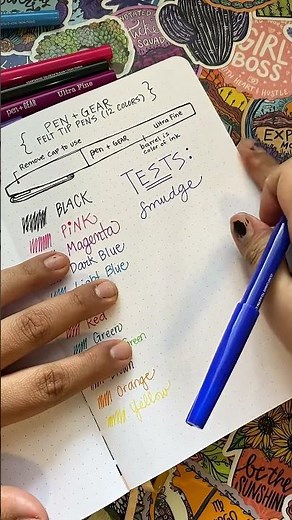 PEN + GEAR
FELT TIP PENS (12 COLORS)
Remove cap to use
PEN + GEAR
ultra Fine
barrel is
color of ink
TESTS:
smudge
BLACK
PiNK
Magenta
Dark Blue
Light Blue
Red
Green
Green
Brown
Orange
Yellow
pen+GEAR
Ultra Fine
GIRL
BOSS
be the
SUNSHINE